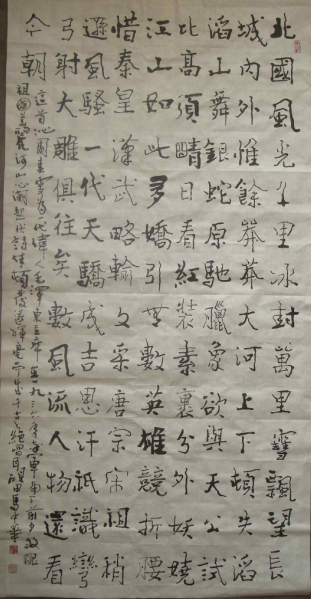 北國風光千里冰封萬里雪飄望長
城內外惟餘莽莽大河上下頓失滔
滔山舞銀蛇原馳臘象欲與天公試
比高須晴日看紅裝素裹分外妖嬈
江山如此多嬌引無數英雄競折腰
惜秦皇漢武略輸文采唐宗宋祖稍
遜風騷一代天驕成吉思汗祇識彎
弓射大雕俱往矣數風流人物還看
今朝
這首沁園春雪為代偉人毛澤東主席在一九三六年